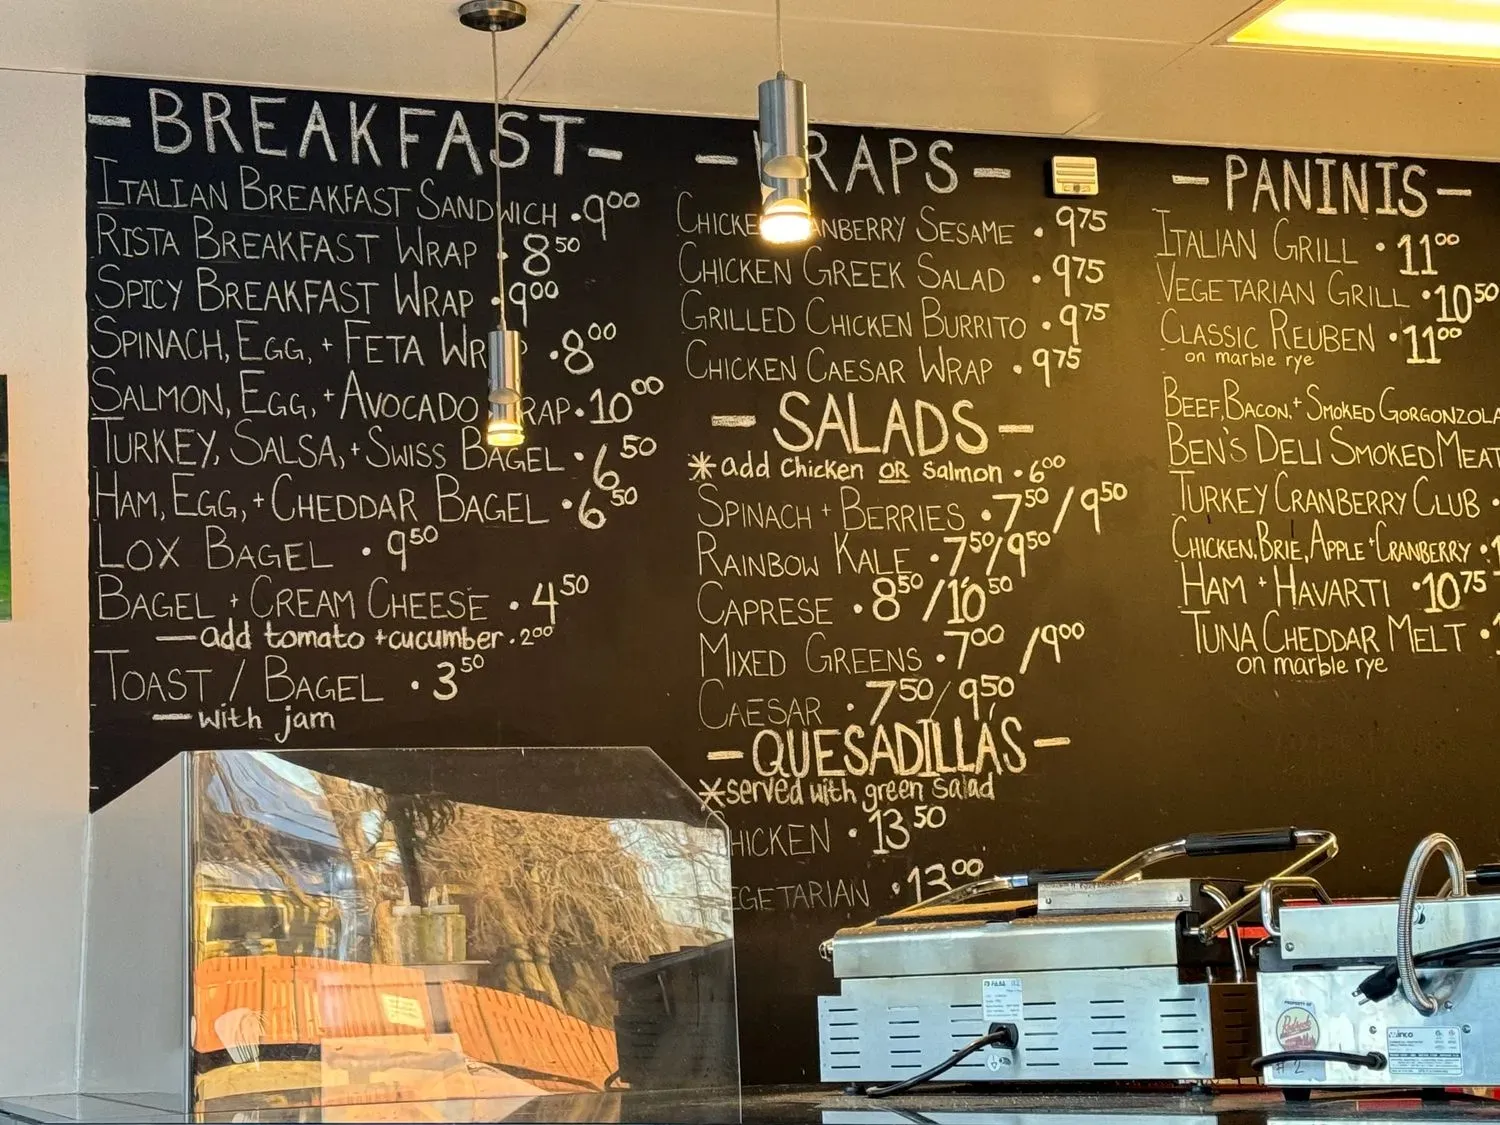 -BREAKFAST-
ITALIAN BREAKFAST SANDWICH • 9⁰⁰
RISTA BREAKFAST WRAP • 8⁵⁰
SPICY BREAKFAST WRAP • 9⁰⁰
SPINACH, EGG, + FETA WR P • 8⁰⁰
SALMON, EGG, + AVOCADO RAP • 10⁰⁰
TURKEY, SALSA, + SWISS BAGEL • 6⁵⁰
HAM, EGG, + CHEDDAR BAGEL • 6⁵⁰
LOX BAGEL • 9⁵⁰
BAGEL + CREAM CHEESE • 4⁵⁰
— add tomato + cucumber . 2⁰⁰
TOAST / BAGEL • 3⁵⁰
— with jam
- RAPS -
CHICKE ANBERRY SESAME • 9⁷⁵
CHICKEN GREEK SALAD • 9⁷⁵
GRILLED CHICKEN BURRITO • 9⁷⁵
CHICKEN CAESAR WRAP • 9⁷⁵
- SALADS -
*add chicken OR salmon • 6⁰⁰
SPINACH + BERRIES • 7⁵⁰/9⁵⁰
RAINBOW KALE • 7⁵⁰/9⁵⁰
CAPRESE • 8⁵⁰/10⁵⁰
MIXED GREENS • 7⁰⁰/9⁰⁰
CAESAR • 7⁵⁰/9⁵⁰
- QUESADILLAS -
*served with green salad
CHICKEN • 13⁵⁰
EGETARIAN • 13⁰⁰
- PANINIS -
ITALIAN GRILL • 11⁰⁰
VEGETARIAN GRILL • 10⁵⁰
CLASSIC REUBEN • 11⁰⁰
on marble rye
BEEF, BACON, + SMOKED GORGONZOLA
BEN'S DELI SMOKED MEAT
TURKEY CRANBERRY CLUB •
CHICKEN, BRIE, APPLE + CRANBERRY •
HAM + HAVARTI • 10⁷⁵
TUNA CHEDDAR MELT •
on marble rye
PROPERTY OF
# 2